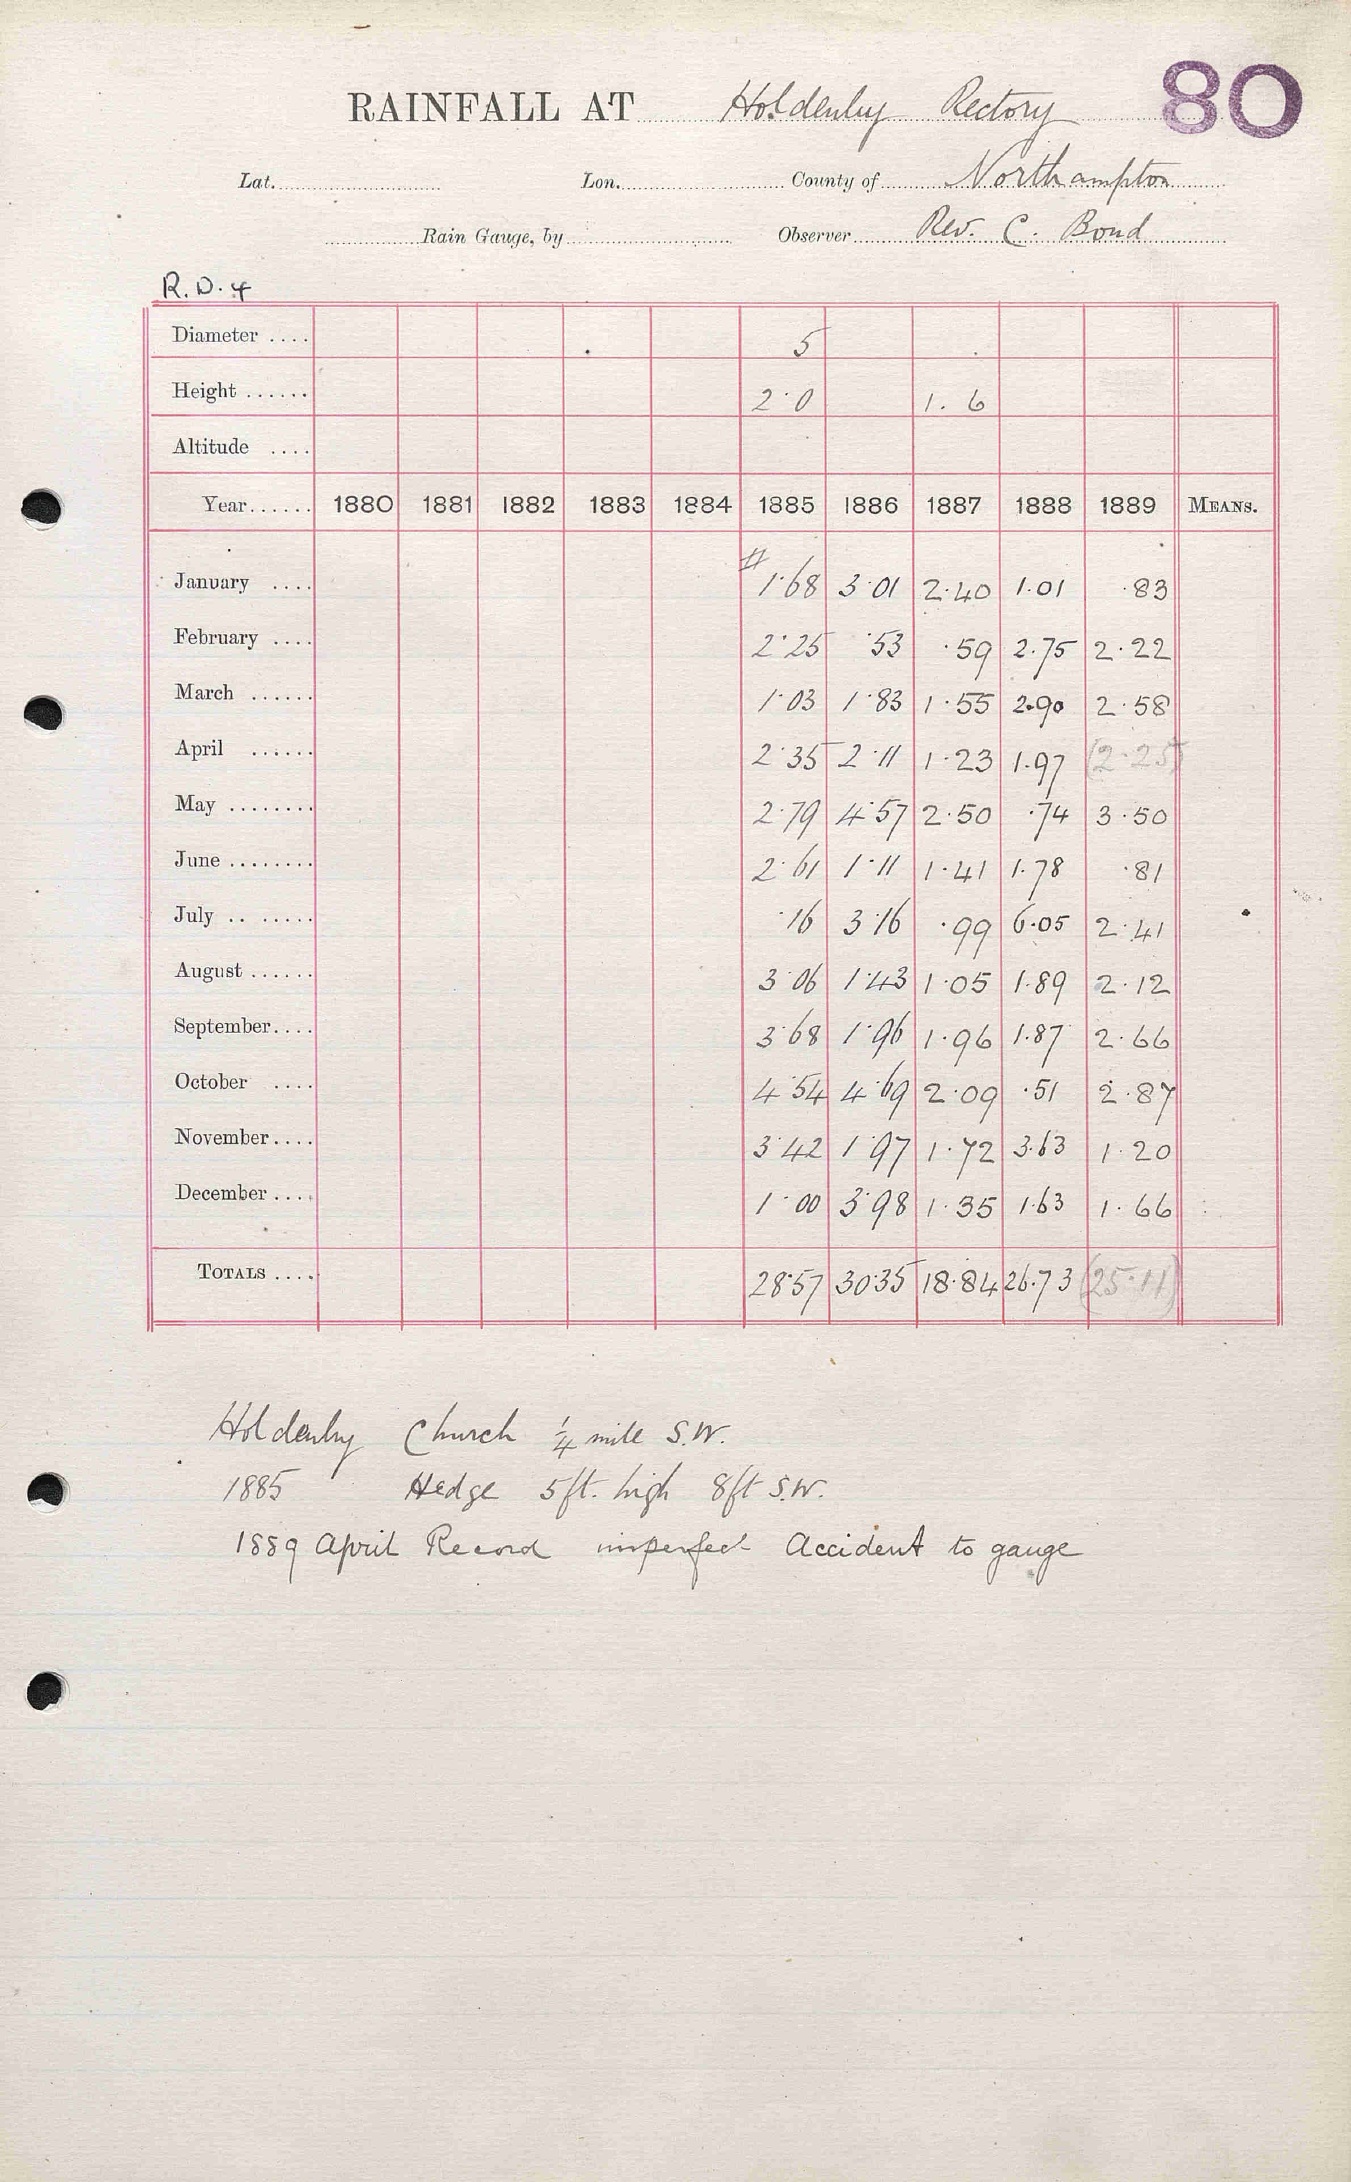 RAINFALL AT Holdenby Rectory 80
Lat. Lon. County of Northampton
Rain Gauge, by Observer Rev. C. Bond
R.D.4
Diameter .... 5
Height ...... 2·0 1.6
Altitude ....
Year...... 1880 1881 1882 1883 1884 1885 1886 1887 1888 1889 MEANS.
#
January .... 1·68 3·01 2·40 1·01 ·83
February .... 2·25 ·53 ·59 2·75 2·22
March ...... 1·03 1·83 1·55 2·90 2·58
April ...... 2·35 2·11 1·23 1·97 (2·25)
May ........ 2·79 4·57 2·50 ·74 3·50
June ........ 2·61 1·11 1·41 1·78 ·81
July .. ..... ·16 3·16 ·99 6·05 2·41
August ...... 3·06 1·43 1·05 1·89 2·12
September.... 3·68 1·96 1·96 1·87 2·66
October .... 4·54 4·69 2·09 ·51 2·87
November.... 3·42 1·97 1·72 3·63 1·20
December .... 1·00 3·98 1·35 1·63 1·66
TOTALS .... 28·57 30·35 18·84 26·73 (25·11)
Holdenby Church 1/4 mile S.W.
1885 Hedge 5ft. high 8ft S.W.
1889 April Record imperfect Accident to gauge